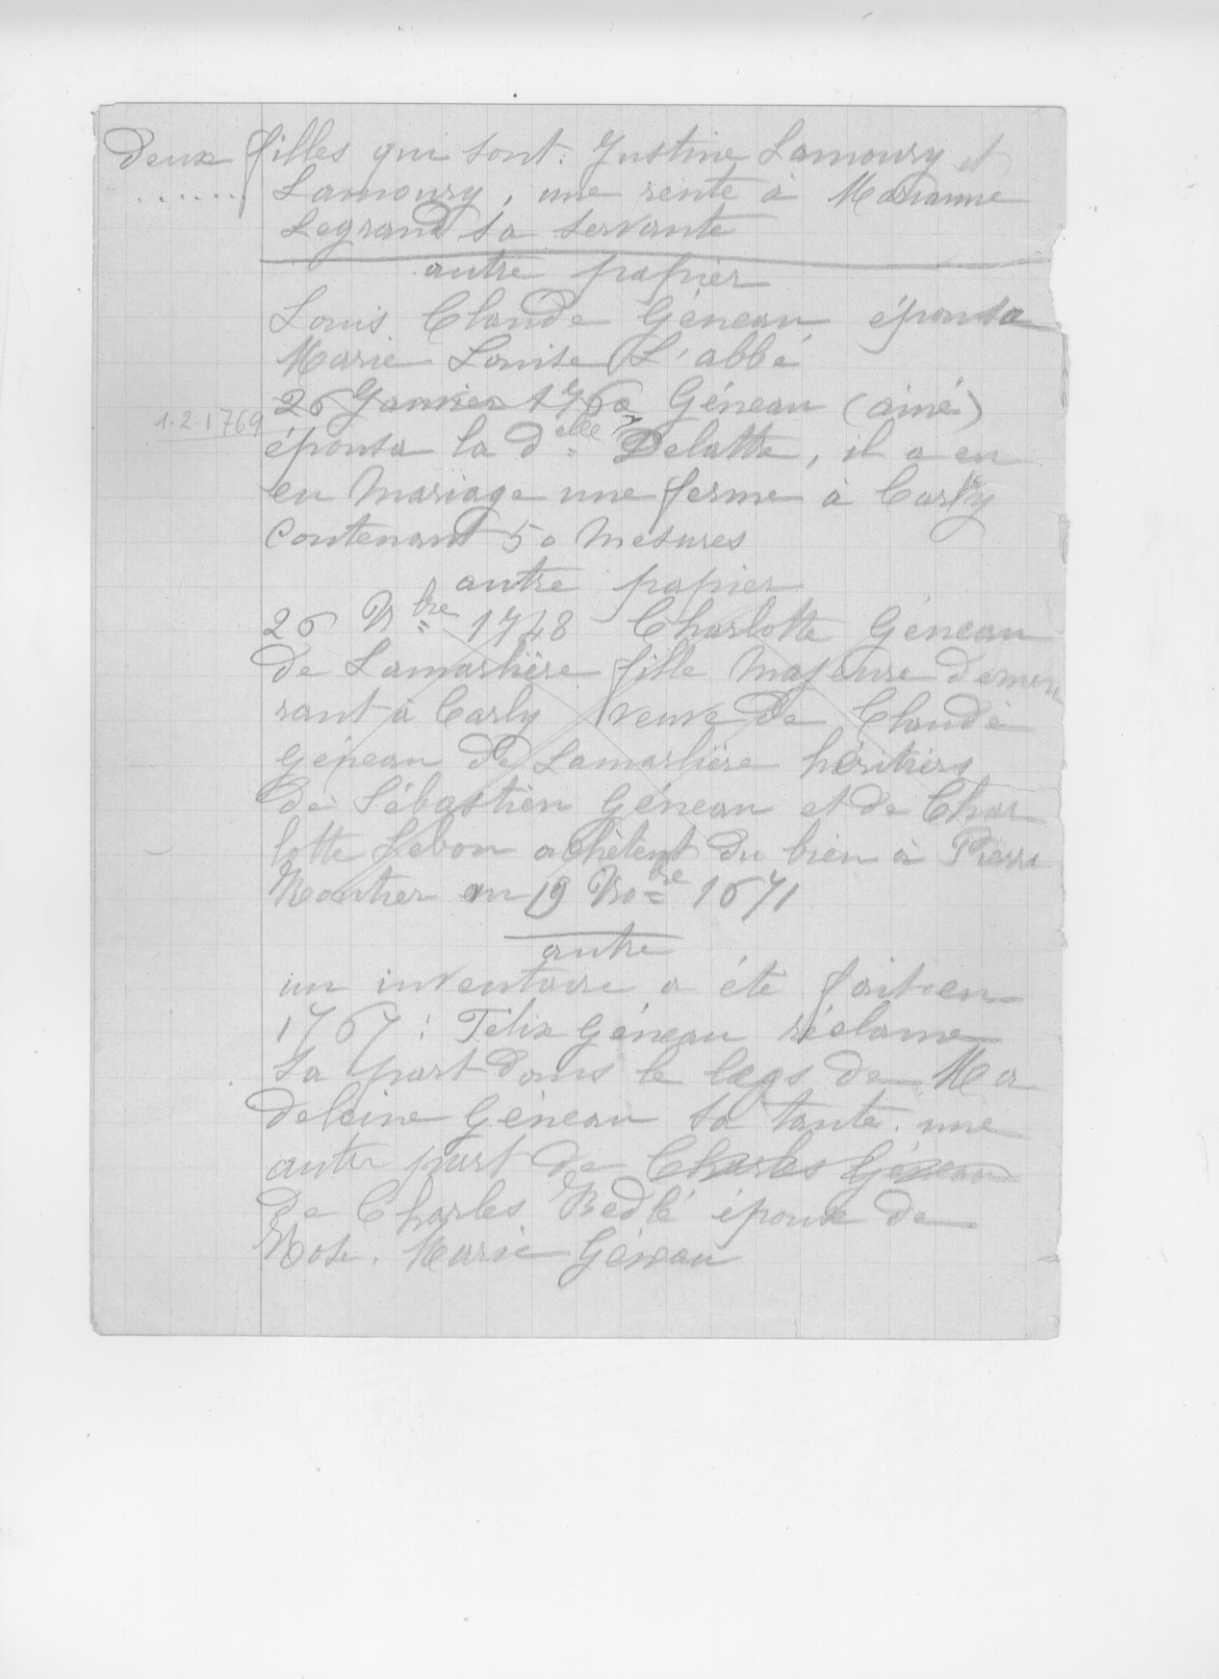 Deux filles qui sont : Justine Lamoury et
...... Lamoury, une rente à Marianne
Legrand sa servante
autre papier
Louis Claude Géneau épousa
Marie Louise L'abbé
26 Janvier 1760 Géneau (ainé)
1.2.1769
épousa la d elle Delattre, il a eu
en mariage une ferme à Carly
contenant 50 mesures
autre papier
26 9bre 1748 Charlotte Géneau
de Lamarlière fille majeure demeu
rant à Carly veuve de Claude
Géneau de Lamarlière héritiers
de Sébastien Géneau et de Char
lotte Lebon achètent du bien à Pierre
en 19 1671
autre
un inventaire a été fait en
1767 : Félix Géneau réclame
sa part dans le legs de Ma
deleine Géneau sa tante. une
autre part de Charles Géneau
de Charles Bedlé époux de
Rose. Marie Géneau